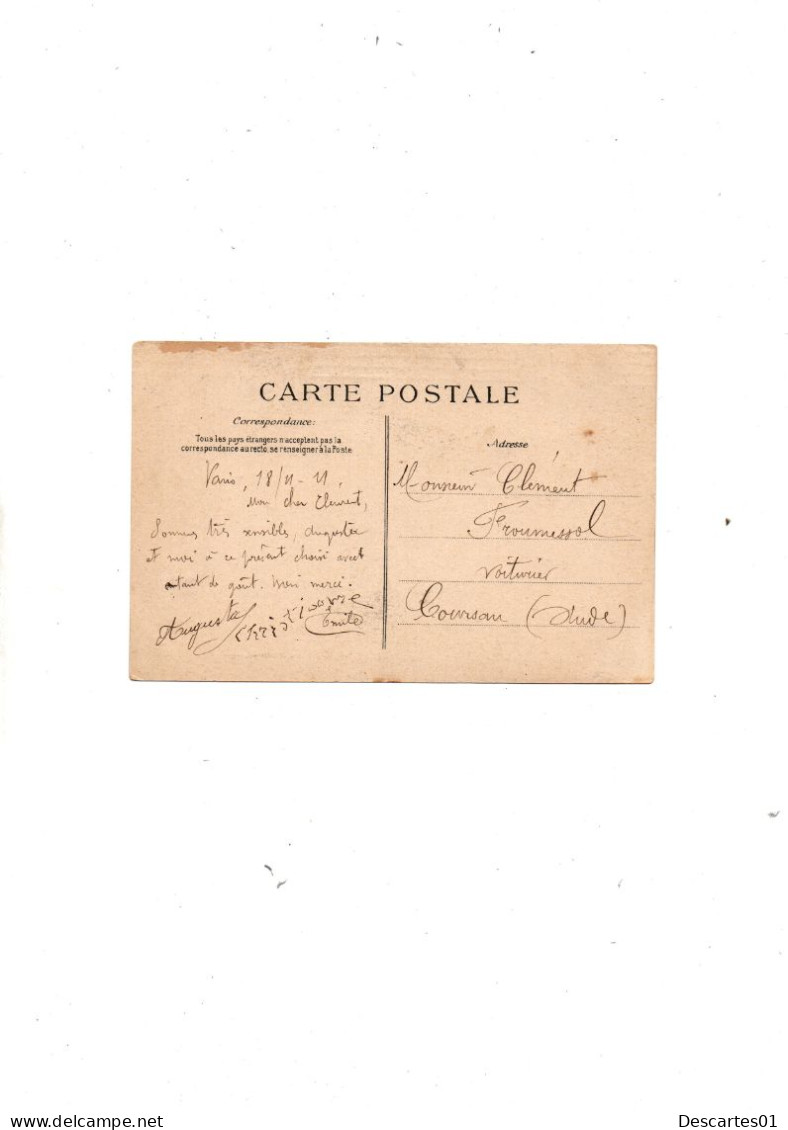 CARTE POSTALE
Correspondance:
Tous les pays étrangers n'acceptent pas la
correspondance au recto, se renseigner à la Poste
Adresse
Paris, 18/11-11,
Mon cher Clément,
Sommes très sensibles, Augusta
et moi à ce présent choisi avec
tant de goût. merci.
Augusta Emile
Monsieur Clément
Froumessol
voiturier
Coursan (Aude)
Descartes01